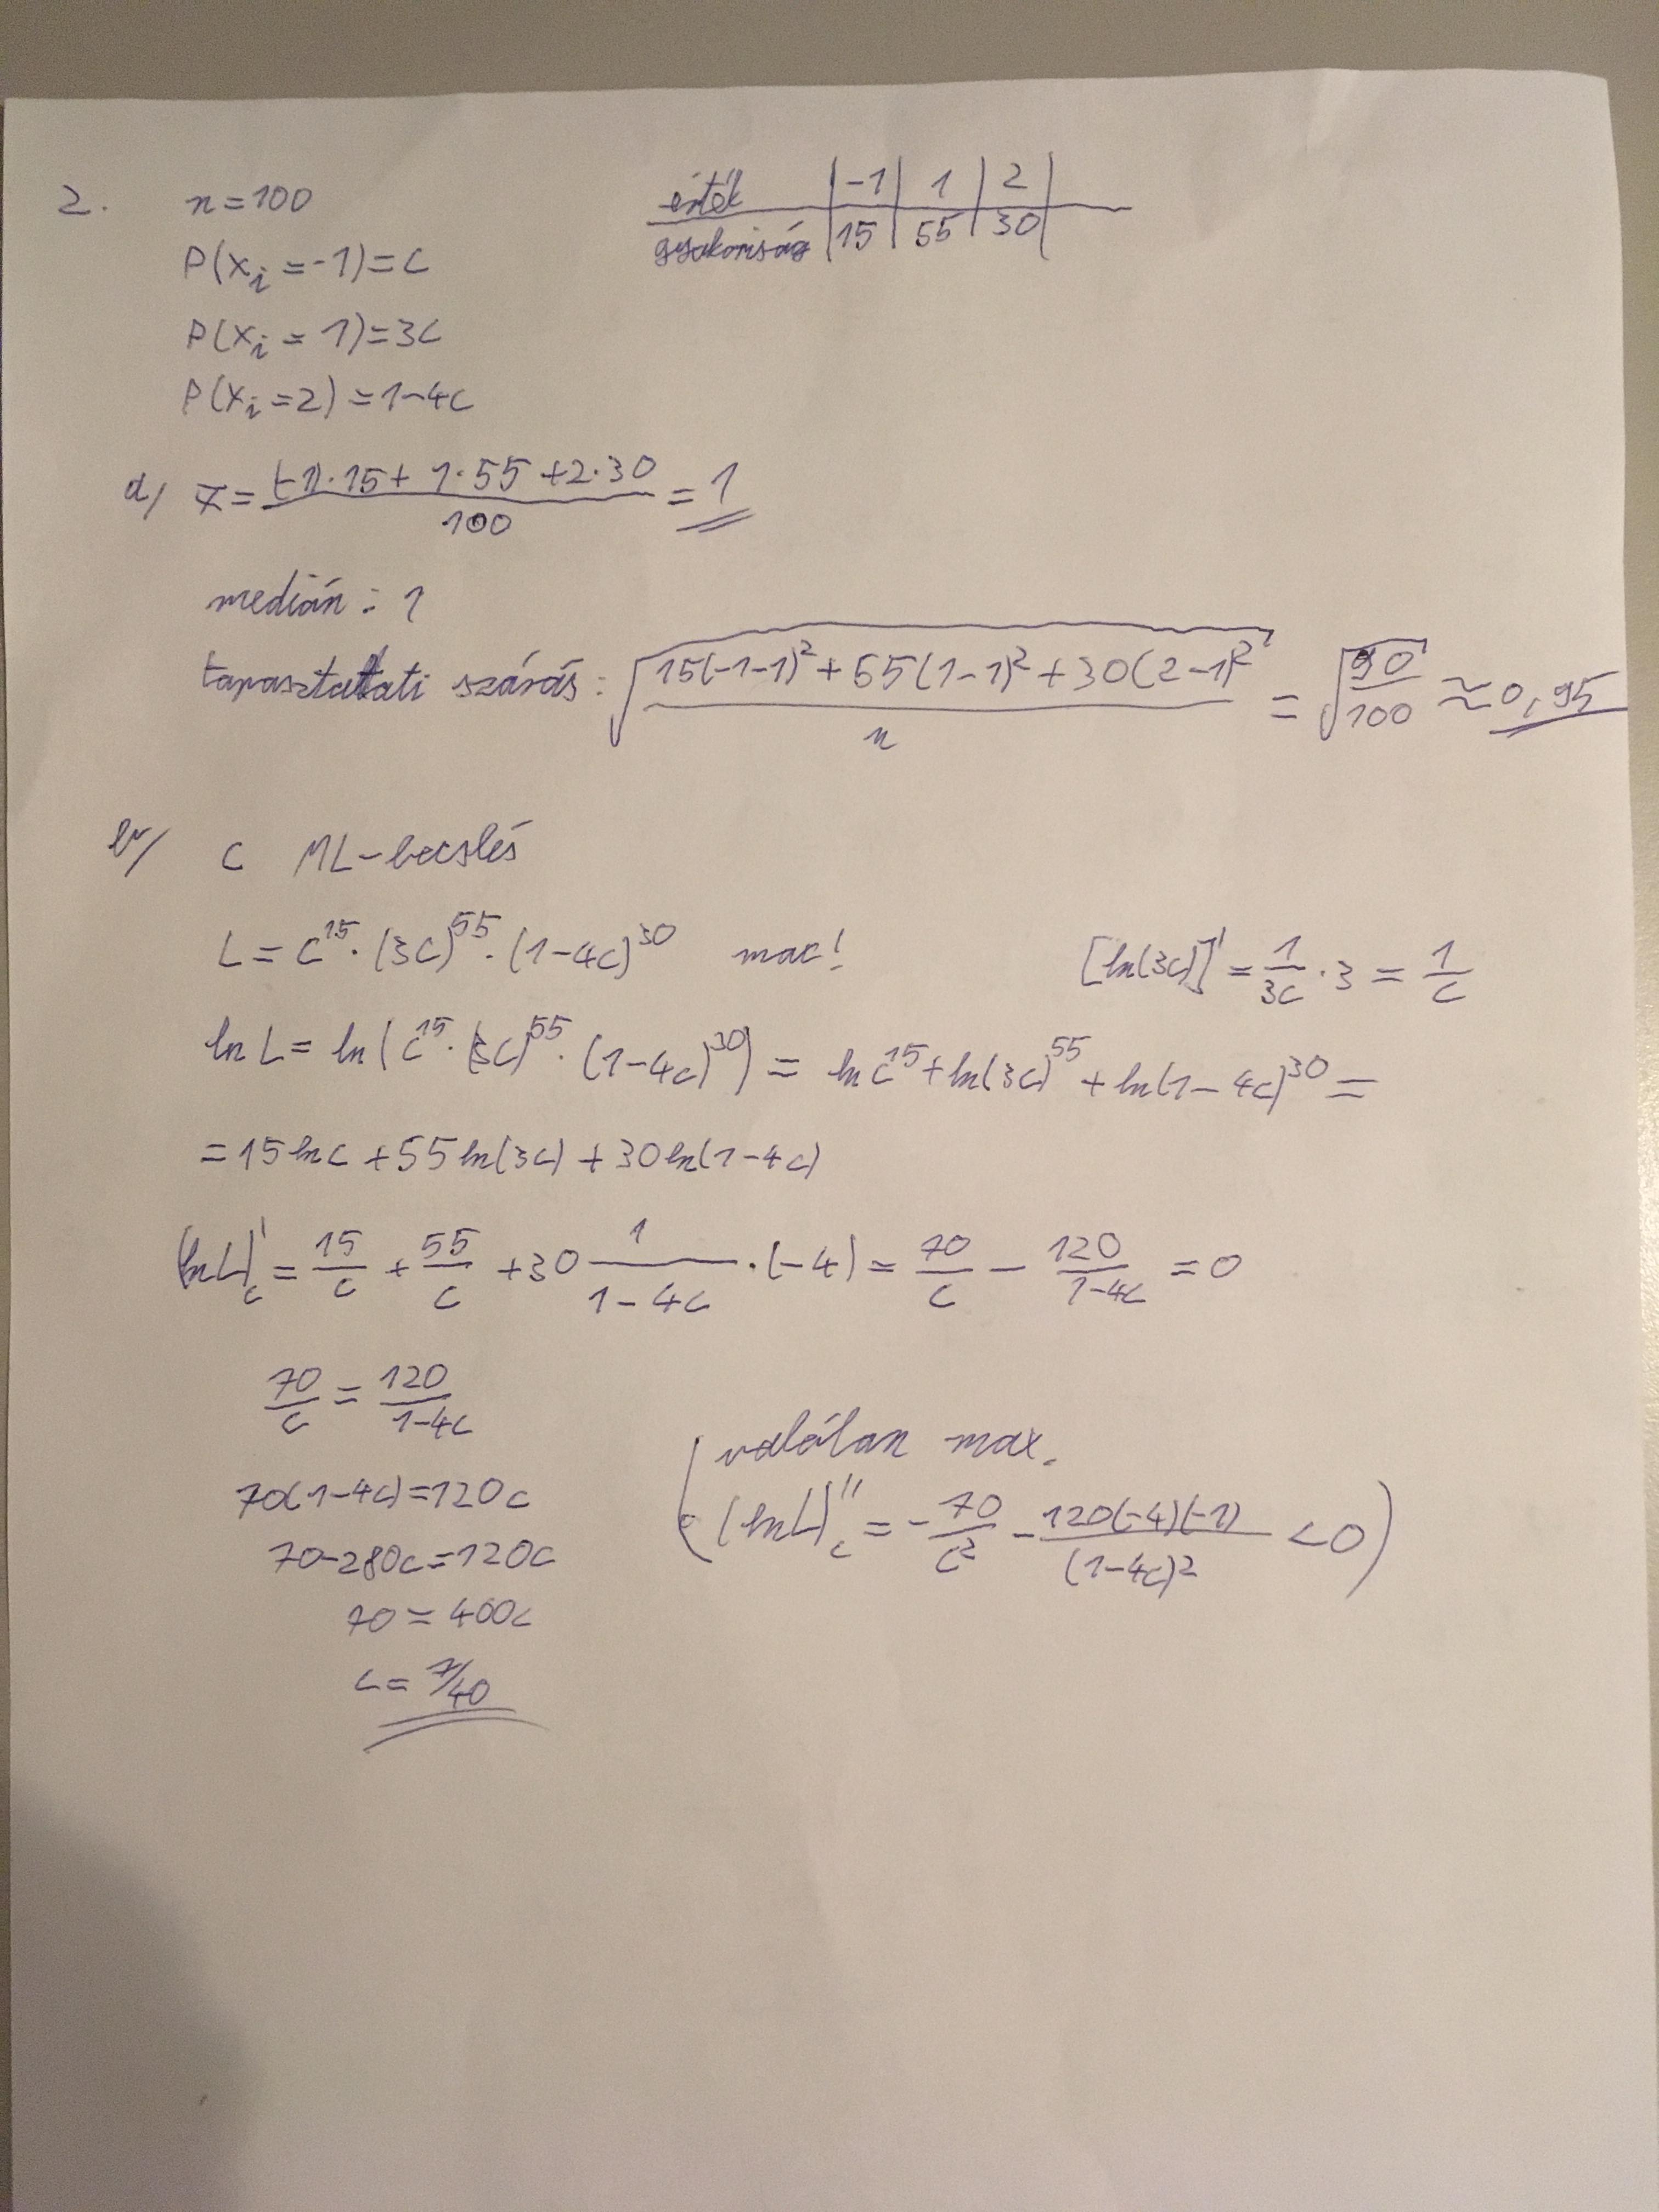 2. n=100
érték | -1 | 1 | 2 |
gyakoriság | 15 | 55 | 30 |
P(x_i=-1)=c
P(x_i=1)=3c
P(x_i=2)=1-4c
a/ x̄ = ((-1)·15+1·55+2·30)/100 = 1
medián: 1
tapasztalati szórás: √((15(-1-1)²+55(1-1)²+30(2-1)²)/n) = √(90/100) ≈ 0,95
b/ c ML-becslés
L=c^15·(3c)^55·(1-4c)^30 max!
[ln(3c)]' = 1/(3c)·3 = 1/c
ln L = ln(c^15·(3c)^55·(1-4c)^30) = ln c^15+ln(3c)^55+ln(1-4c)^30 =
=15 ln c+55 ln(3c)+30 ln(1-4c)
(ln L)'_c = 15/c + 55/c + 30 1/(1-4c)·(-4) = 70/c - 120/(1-4c) = 0
70/c = 120/(1-4c)
70(1-4c)=120c
70-280c=120c
70=400c
c=7/40
(valóban max.
(ln L)''_c = -70/c² - 120(-4)(-1)/(1-4c)² <0)